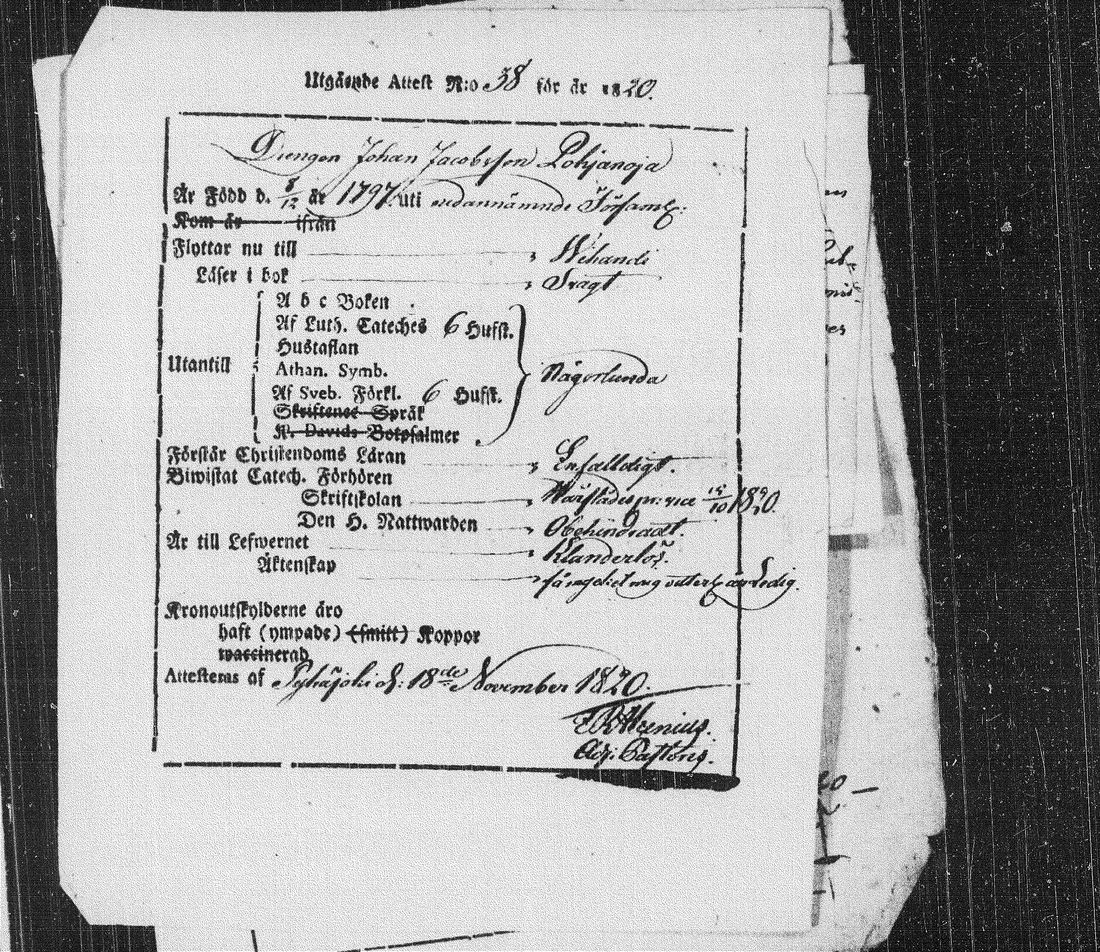 Utgående Attest N:o 38 för år 1820.
Drengen Johan Jacobsson Pohjanoja
Är Född d. 8/12 år 1797 uti nedannämnde Församl:
Kom år ifrån
Flyttar nu till Wehandi
Läser i bok Svagt
A b c Boken
Af Luth. Cateches 6 Hufst.
Hustaflan
Utantill Athan. Symb. Någorlunda
Af Sveb. Förkl. 6 Hufst.
Skriftenes Språk
K. Davids Botpsalmer
Förstår Christendoms Läran Enfaldigt.
Biwistat Catech. Förhören
Skriftskolan 15/10 1820
Den H. Nattwarden Obehindradt.
Är till Lefwernet Klanderlös.
Äktenskap ledig.
Kronoutskylderne äro
haft (ympade) (smitt) Koppor
waccinerad
Attesteras af Pyhäjoki d: 18de November 1820.
Adj. Pastoris.